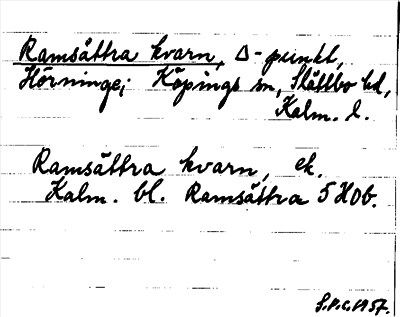 Ramsättra kvarn, Δ-punkt,
Hörninge; Köpings sn, Slättbo hd,
Kalm. l.
Ramsättra kvarn, ek.
Kalm. bl. Ramsättra 5 H0b.
S.P.C. 1957.